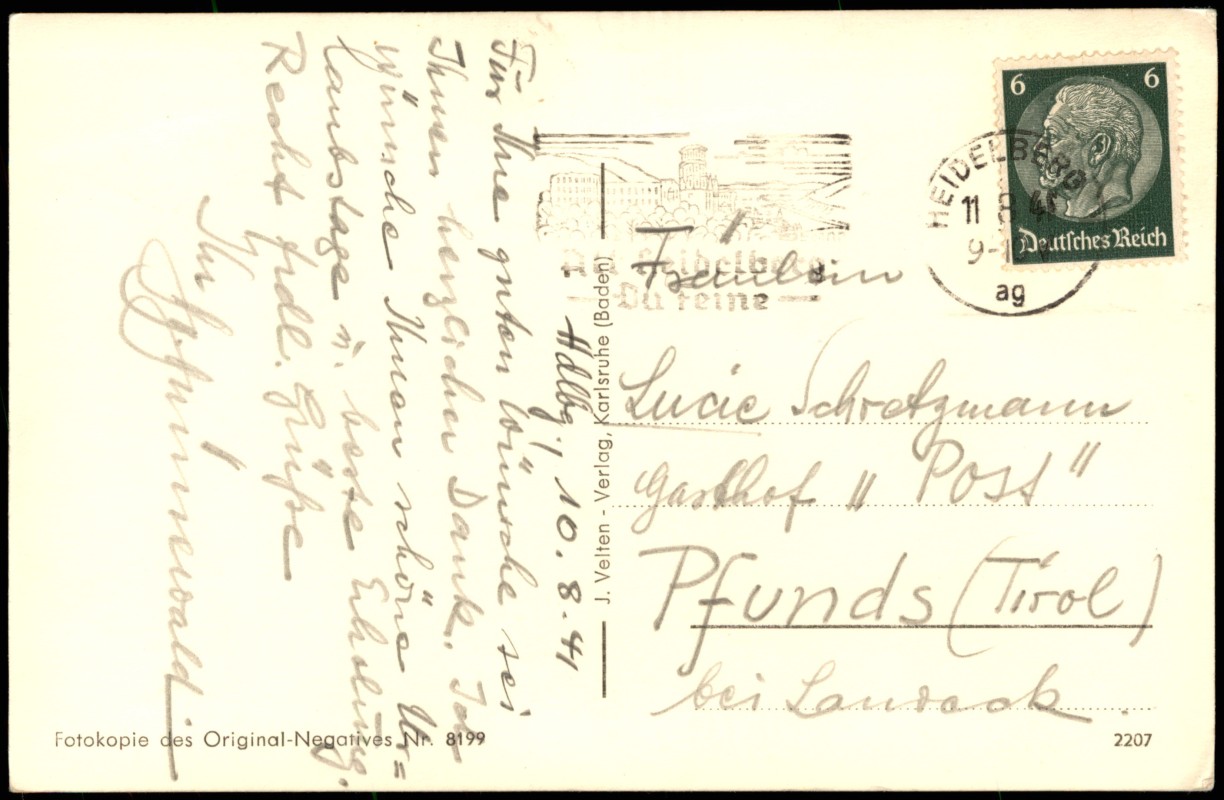 Hdlbg, 10.8.41
Für Ihre guten Wünsche sei
Ihnen herzlicher Dank. Ich
wünsche Ihnen schöne Ur=
laubstage u. beste Erholung.
Recht frdl. Grüße
Ihr
J. Velten - Verlag, Karlsruhe (Baden)
6 6
Deutsches Reich
HEIDELBERG
11 8 41
9-1
ag
Alt Heidelberg
Du feine
Fräulein
Lucie Schretzmann
Gasthof „Post"
Pfunds (Tirol)
bei Landeck.
Fotokopie des Original-Negatives Nr. 8199
2207